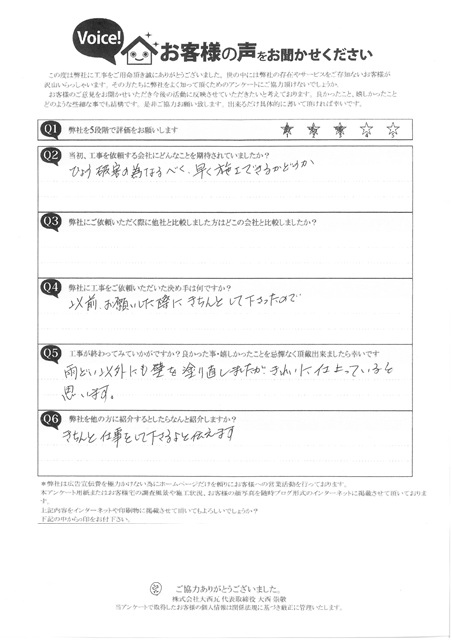 Voice!
お客様の声をお聞かせください
この度は弊社に工事をご用命頂き誠にありがとうございました。世の中には弊社の存在やサービスをご存知ないお客様が
沢山いらっしゃいます。その方たちに弊社をよく知って頂くためのアンケートにご協力頂けないでしょうか。
お客様のご意見をお聞かせいただき今後の活動に反映させていただきたいと考えております。良かったこと、嬉しかったこと
どのような些細な事でも結構です。是非ご協力お願い致します。出来るだけ具体的に書いて頂ければ幸いです。
Q1 弊社を5段階で評価をお願いします
Q2 当初、工事を依頼する会社にどんなことを期待されていましたか?
ひょう被害の為なるべく早く施工できるかどうか
Q3 弊社にご依頼いただく際に他社と比較しました方はどこの会社と比較しましたか?
Q4 弊社に工事をご依頼いただいた決め手は何ですか?
以前、お願いした際にきちんとして下さったので
Q5 工事が終わってみていかがですか?良かった事・嬉しかったことを忌憚なく頂戴出来ましたら幸いです
雨どい以外にも壁を塗り直しましたが、きれいに仕上っていると
思います。
Q6 弊社を他の方に紹介するとしたらなんと紹介しますか?
きちんと仕事をして下さると伝えます
*弊社は広告宣伝費を極力かけない為にホームページだけを頼りにお客様への営業活動を行っております。
本アンケート用紙またはお客様宅の調査風景や施工状況、お客様の顔写真を随時ブログ形式のインターネットに掲載させて頂いております。
上記内容をインターネットや印刷物に掲載させて頂いてもよろしいでしょうか?
下記の中からの印をお付け下さい。
ご協力ありがとうございました。
株式会社大西瓦 代表取締役 大西 崇敬
当アンケートで取得したお客様の個人情報は関係法規に基づき厳正に管理いたします。